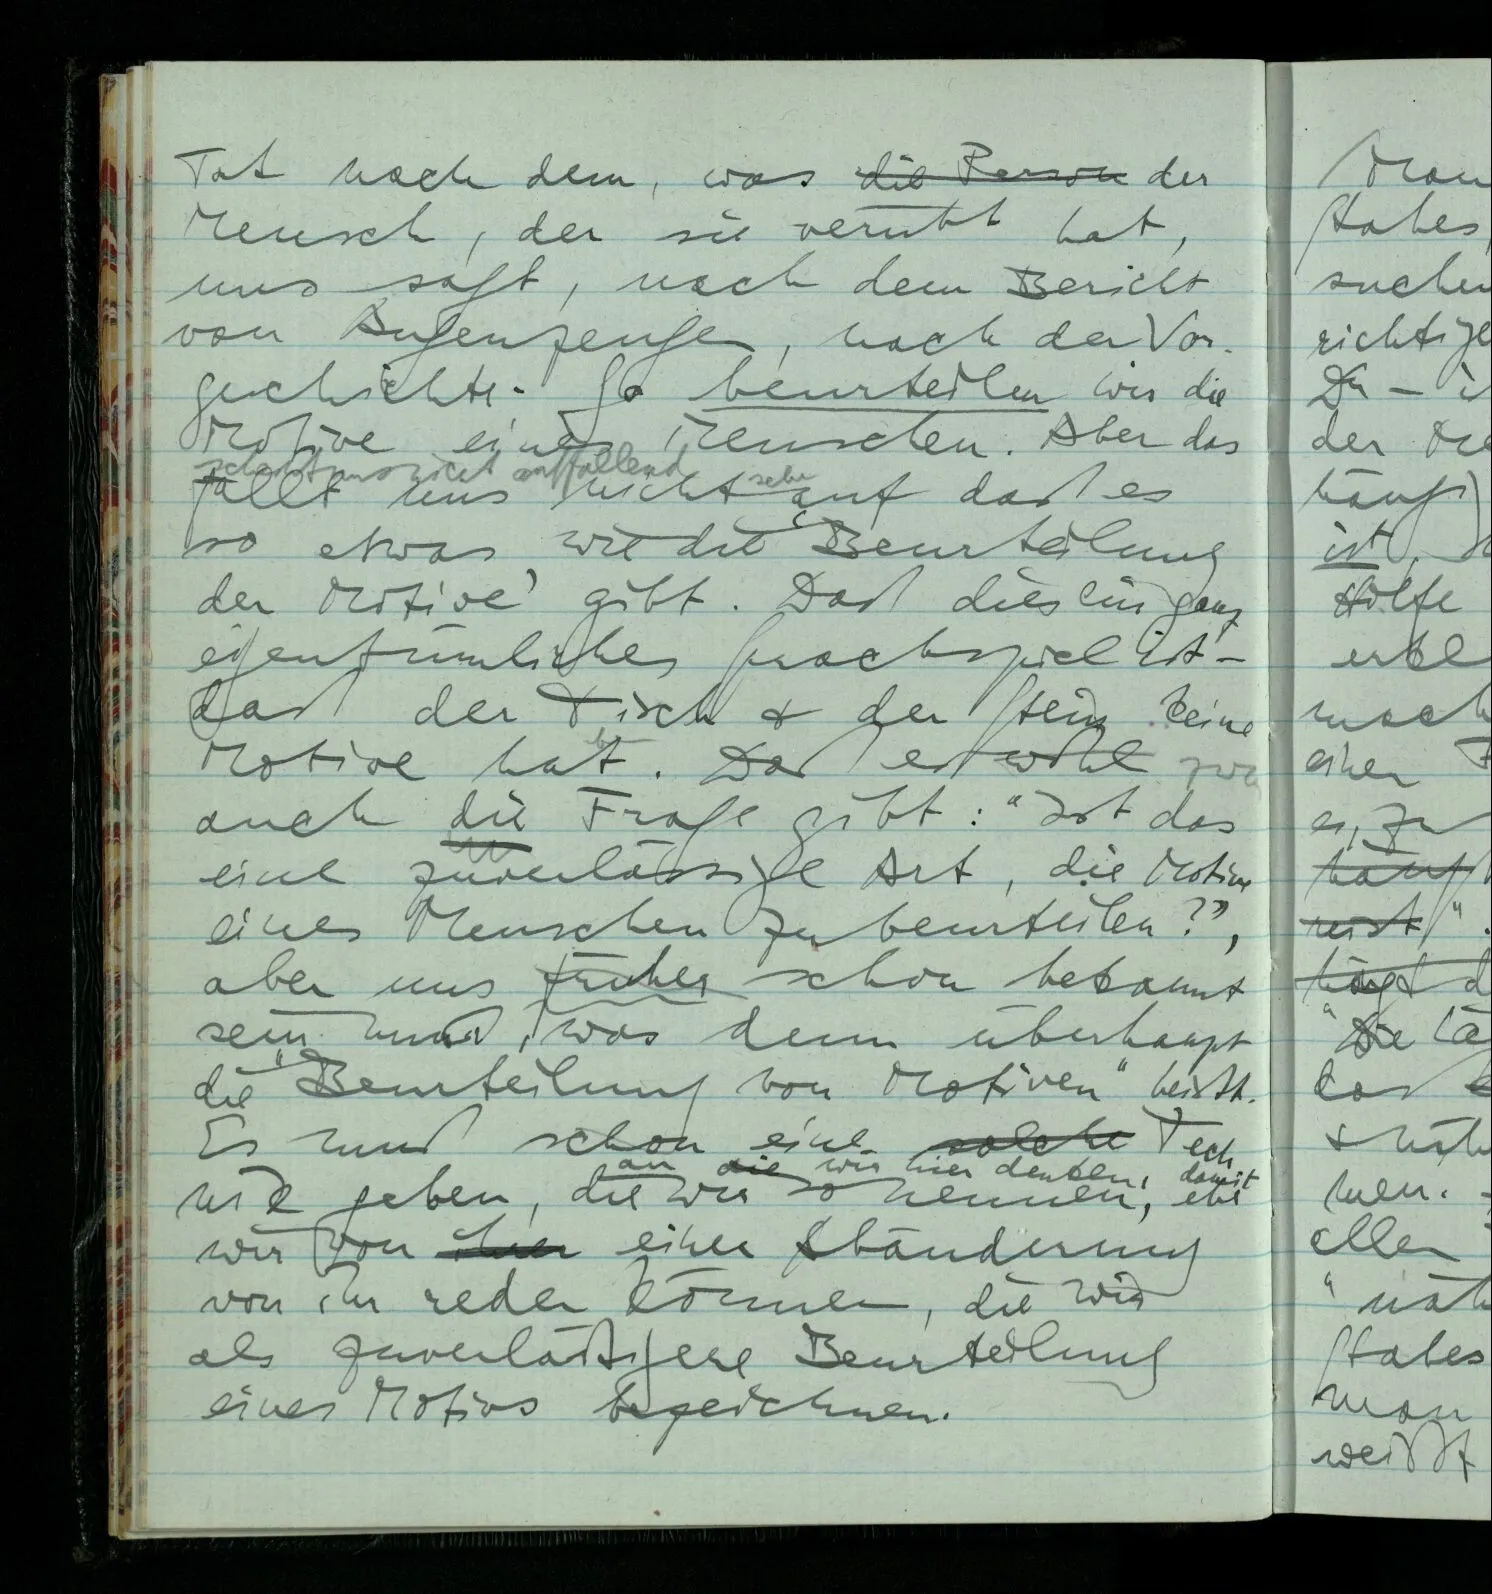 Tat nach dem, was die Person der
Mensch, der sie verübt hat,
uns sagt, nach dem Bericht
von Augenzeugen, nach der Vor-
geschichte. So beurteilen wir die
Motive eines Menschen. Aber das
scheint uns nicht auffallend
fällt uns nicht sehr auf daß es
so etwas wie die ‘Beurteilung
der Motive’ gibt. Daß dies ein ganz
eigentümliches Sprachspiel ist –
daß der Tisch & der Stein keine
Motive hat. Daß es wohl
auch die Frage gibt: “Ist das
eine zuverlässige Art, die Motive
eines Menschen zu beurteilen?”,
aber uns früher schon bekannt
sein muß, was denn überhaupt
die “Beurteilung von Motiven” heißt.
Es muß schon eine solche Tech
an die wir hier denken, damit
nik geben, die wir so nennen, ehe
wir von ihrer einer Abänderung
von ihr reden können, die wir
als zuverläßigere Beurteilung
eines Motivs bezeichnen.
Man
Stabes,
suchen
richtige
der
ist
Hilfe
mach
einer
es, zu
"Die Lä
das
& näh
nen.
aller
"näh
Stabes
man
weißt